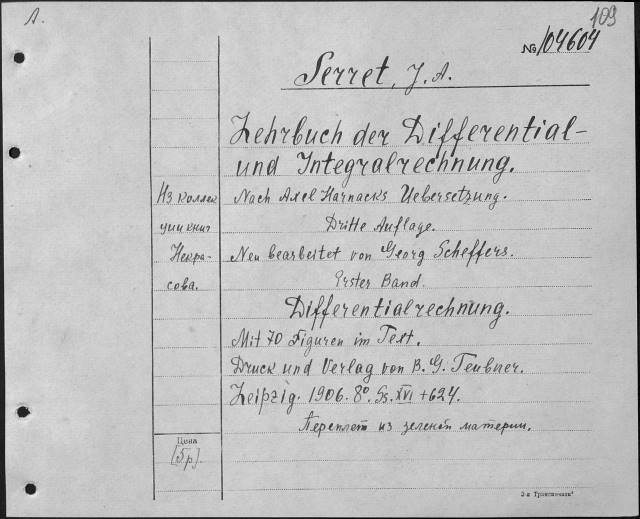 Л.
109
№ 104604
Serret, J. A.
Lehrbuch der Differential-
und Integralrechnung.
Из коллек
ции книг
Некра-
сова.
Nach Axel Harnacks Uebersetzung.
Dritte Auflage.
Neu bearbeitet von Georg Scheffers.
Erster Band.
Differentialrechnung.
Mit 70 Figuren im Text.
Druck und Verlag von B. G. Teubner.
Leipzig. 1906. 8°. Ss. XVI + 624.
Переплет из зеленой материи.
Цена
[5р].